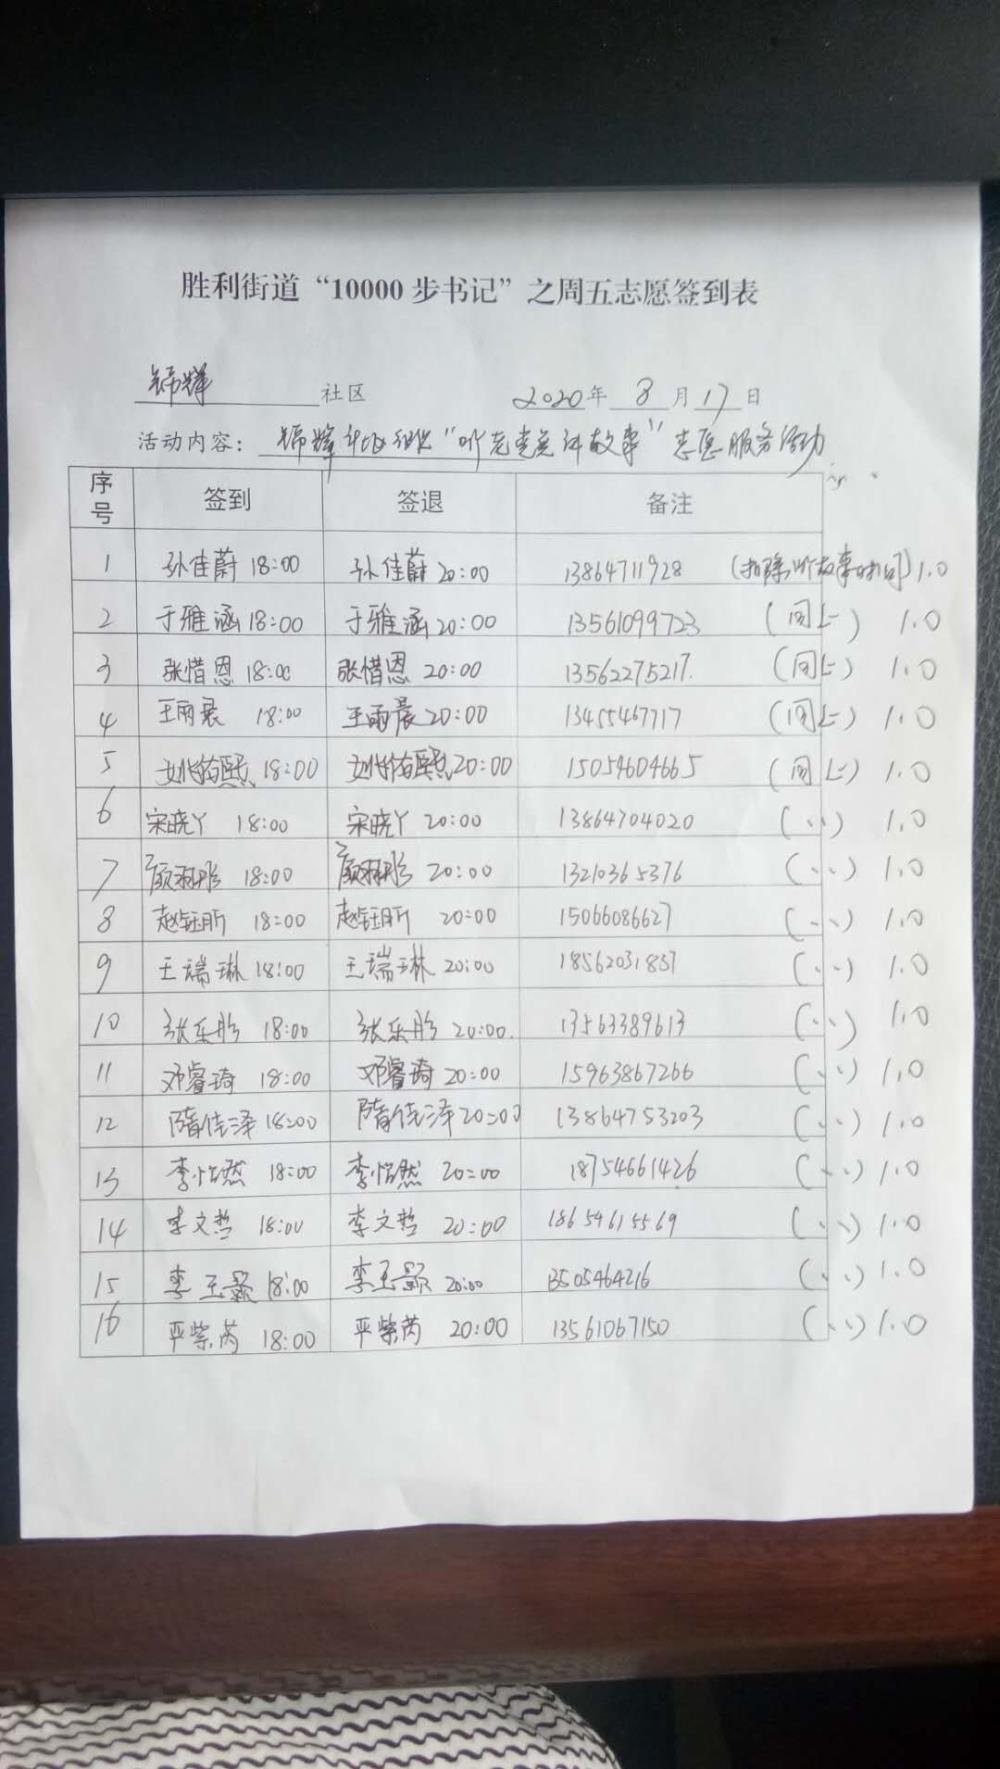 胜利街道“10000步书记”之周五志愿签到表
锦辉 社区 2020年 8 月 17 日
活动内容： 锦辉社区组织“听老党员讲故事”志愿服务活动
序号 签到 签退 备注
1 孙佳蔚 18:00 孙佳蔚 20:00 13864711928 (扣除听故事时间) 1.0
2 于雅涵 18:00 于雅涵 20:00 13561099723 (同上) 1.0
3 张惜恩 18:00 张惜恩 20:00 13562275217. (同上) 1.0
4 王雨晨 18:00 王雨晨 20:00 13455467717 (同上) 1.0
5 18:00 20:00 15054604665 (同上) 1.0
6 宋晓丫 18:00 宋晓丫 20:00 13864704020 (、、) 1.0
7 18:00 20:00 13210365376 (、、) 1.0
8 赵钰昕 18:00 赵钰昕 20:00 15066086627 (、、) 1.0
9 王瑞琳 18:00 王瑞琳 20:00 18562031837 (、、) 1.0
10 张乐彤 18:00 张乐彤 20:00. 13563389613 (、、) 1.0
11 邓睿琦 18:00 邓睿琦 20:00 15963867266 (、、) 1.0
12 隋佳泽 18:00 隋佳泽 20:00 13864753203 (、、) 1.0
13 李怡然 18:00 李怡然 20:00 18754661426 (、、) 1.0
14 李文哲 18:00 李文哲 20:00 18654615569 (、、) 1.0
15 李玉颢 18:00 李玉颢 20:00 13505464216 (、、) 1.0
16 平紫芮 18:00 平紫芮 20:00 13561067150 (、、) 1.0